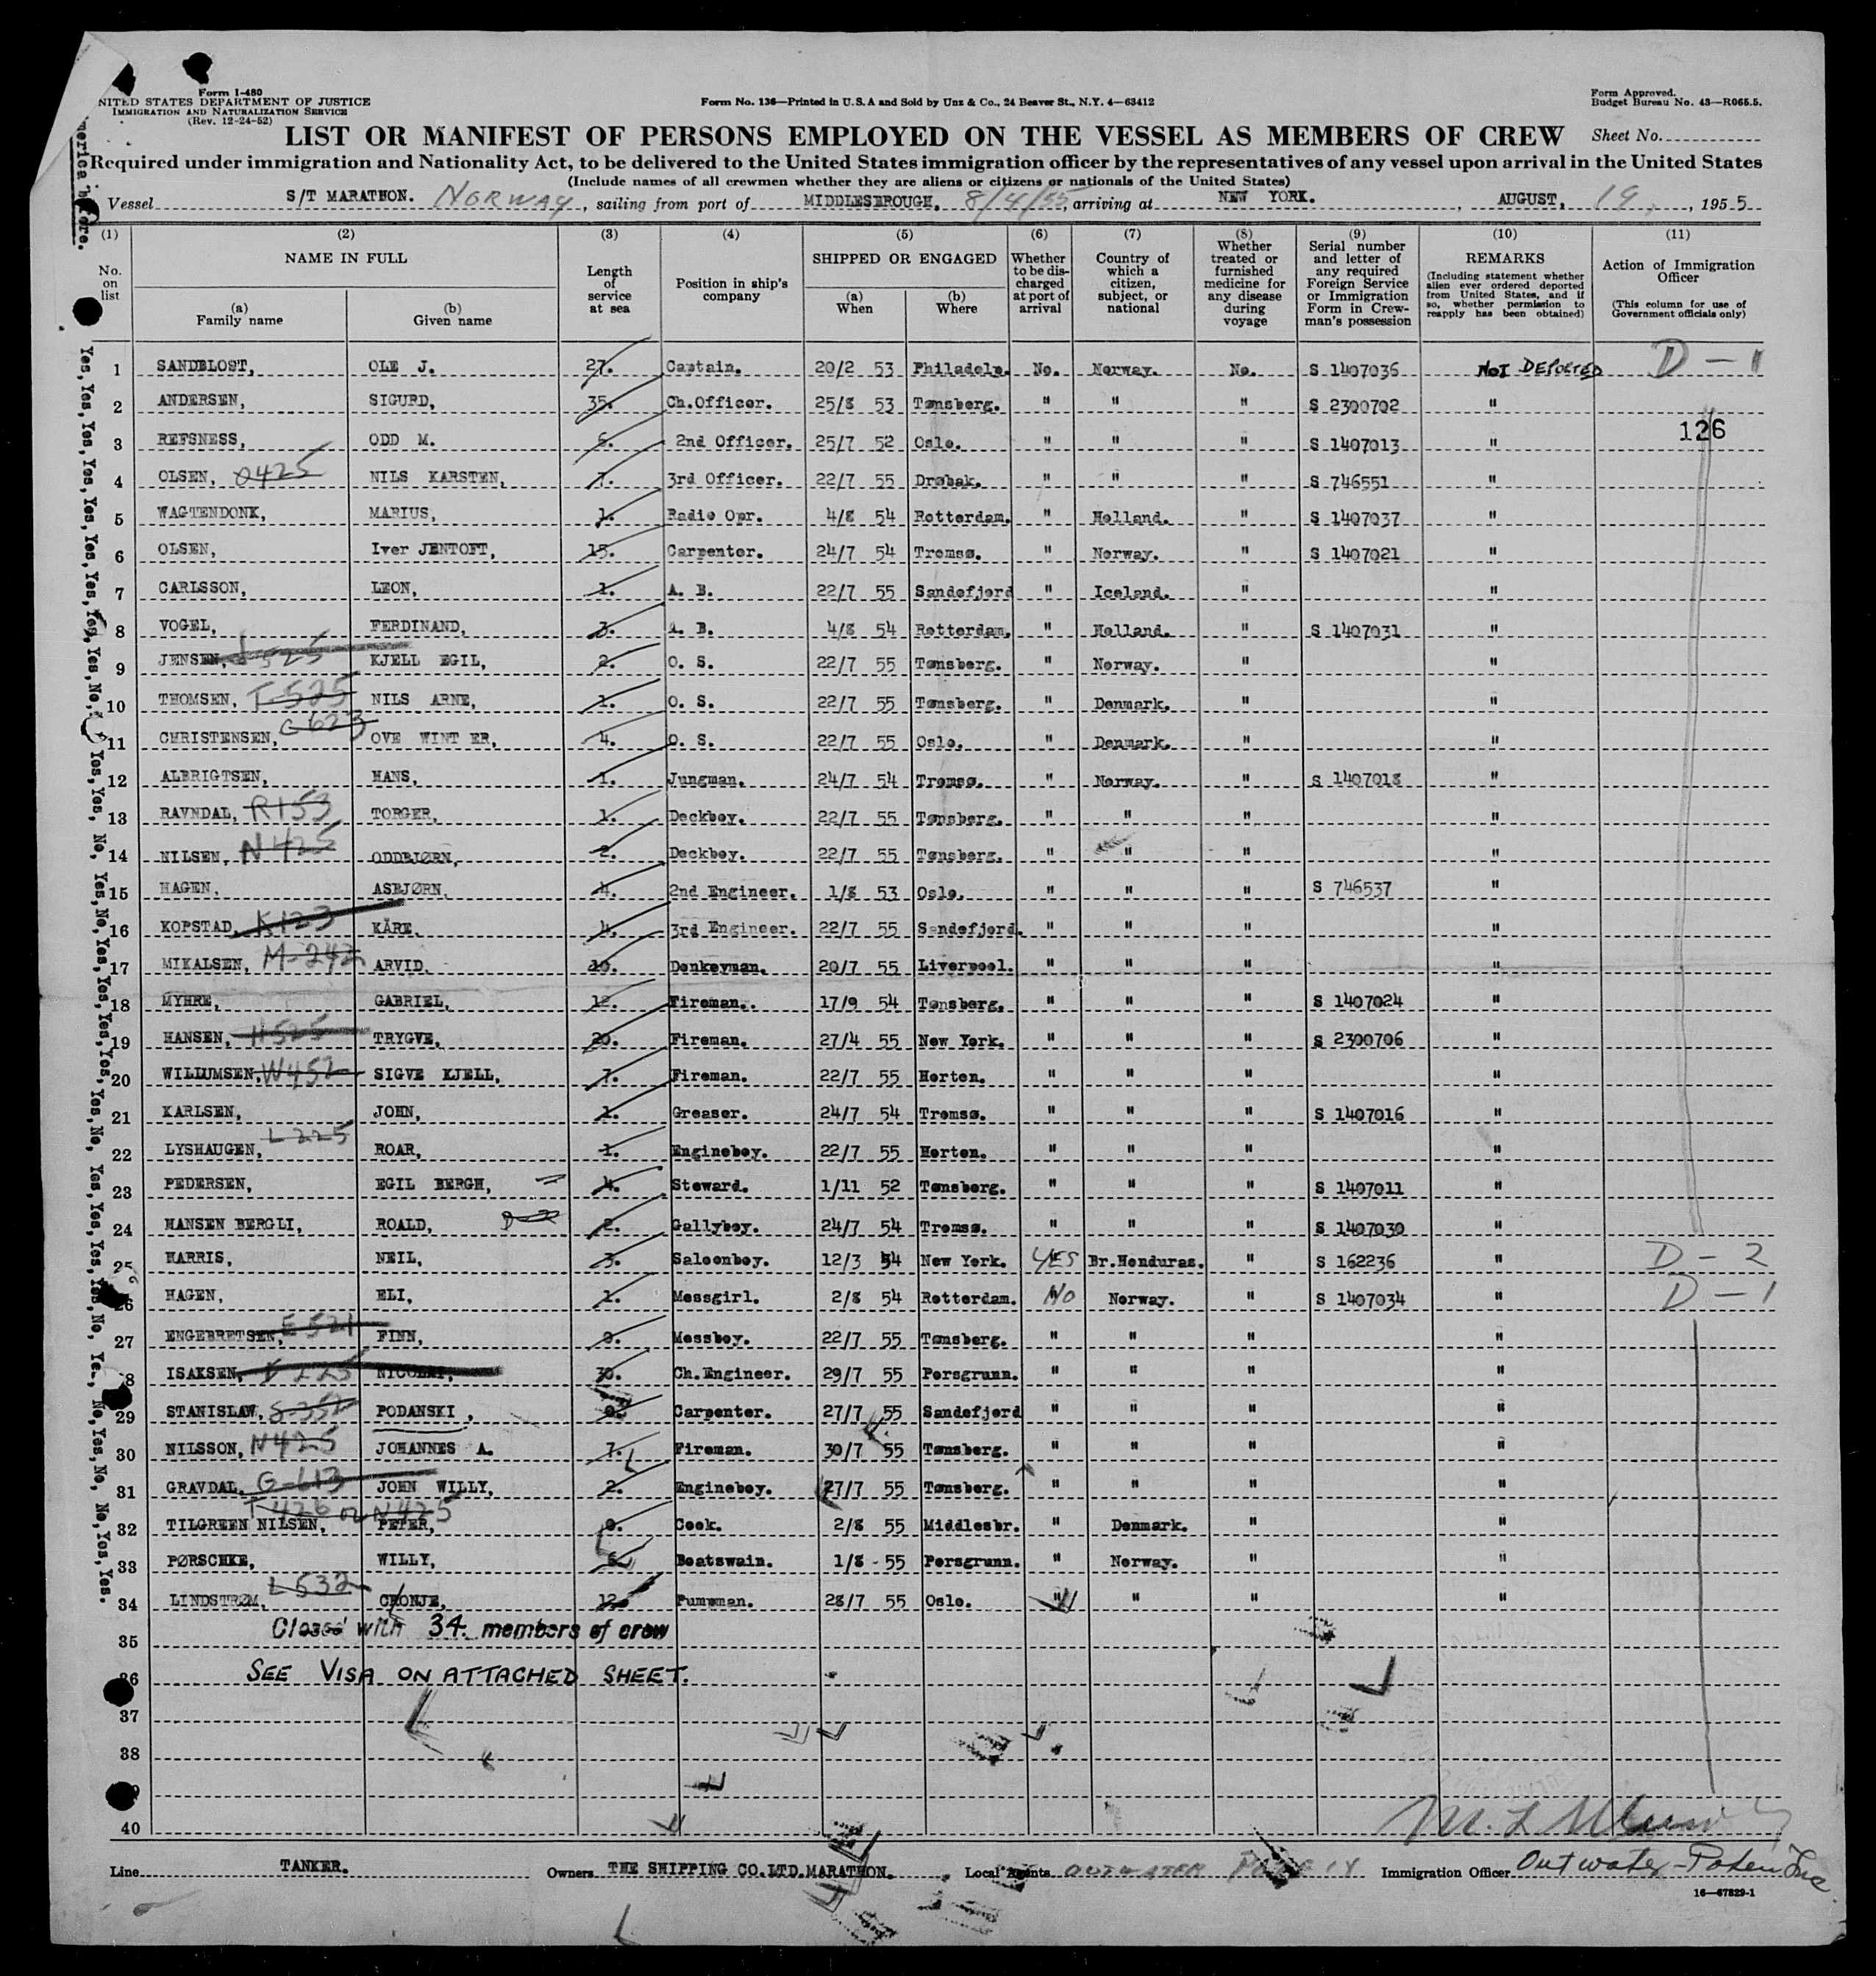 Form I-480
UNITED STATES DEPARTMENT OF JUSTICE
IMMIGRATION AND NATURALIZATION SERVICE
(Rev. 12-24-52)
Form No. 136—Printed in U.S.A and Sold by Unz & Co., 24 Beaver St., N.Y. 4—63412
Form Approved.
Budget Bureau No. 43—R065.5.
LIST OR MANIFEST OF PERSONS EMPLOYED ON THE VESSEL AS MEMBERS OF CREW
Sheet No.
Required under immigration and Nationality Act, to be delivered to the United States immigration officer by the representatives of any vessel upon arrival in the United States
(Include names of all crewmen whether they are aliens or citizens or nationals of the United States)
Vessel S/T MARATHON. NORWAY, sailing from port of MIDDLESBROUGH, 8/4/55, arriving at NEW YORK. , AUGUST, 19, , 1955
(1) (2) (3) (4) (5) (6) (7) (8) (9) (10) (11)
No. on list
NAME IN FULL
(a) Family name
(b) Given name
Length of service at sea
Position in ship's company
SHIPPED OR ENGAGED
(a) When
(b) Where
Whether to be discharged at port of arrival
Country of which a citizen, subject, or national
Whether treated or furnished medicine for any disease during voyage
Serial number and letter of any required Foreign Service or Immigration Form in Crewman's possession
REMARKS
(Including statement whether alien ever ordered deported from United States, and if so, whether permission to reapply has been obtained)
Action of Immigration Officer
(This column for use of Government officials only)
1 SANDBLOST, OLE J. 27. Captain. 20/2 53 Philadelp. No. Norway. No. S 1407036 NOT DEPORTED D-1
2 ANDERSEN, SIGURD, 35. Ch.Officer. 25/8 53 Tønsberg. " " " S 2300702 "
126
3 REFSNESS, ODD M. 6. 2nd Officer. 25/7 52 Oslo. " " " S 1407013 "
4 OLSEN, O425 NILS KARSTEN, 7. 3rd Officer. 22/7 55 Drøbak. " " " S 746551 "
5 WAGTENDONK, MARIUS, 1. Radio Opr. 4/8 54 Rotterdam. " Holland. " S 1407037 "
6 OLSEN, Iver JENTOFT, 15. Carpenter. 24/7 54 Tromsø. " Norway. " S 1407021 "
7 CARLSSON, LEON, 1. A. B. 22/7 55 Sandefjord " Iceland. " "
8 VOGEL, FERDINAND, 3. A. B. 4/8 54 Rotterdam. " Holland. " S 1407031 "
9 JENSEN, J525 KJELL EGIL, 2. O. S. 22/7 55 Tønsberg. " Norway. " "
10 THOMSEN, T-525 NILS ARNE, 1. O. S. 22/7 55 Tønsberg. " Denmark. " "
11 CHRISTENSEN, C623 OVE WINT ER, 4. O. S. 22/7 55 Oslo. " Denmark. " "
12 ALBRIGTSEN, HANS, 1. Jungman. 24/7 54 Tromsø. " Norway. " S 1407018 "
13 RAVNDAL, R153 TORGER, 1. Deckboy. 22/7 55 Tønsberg. " " " "
14 NILSEN, N425 ODDBJØRN, 2. Deckboy. 22/7 55 Tønsberg. " " " "
15 HAGEN, ASBJØRN, 4. 2nd Engineer. 1/8 53 Oslo. " " " S 746537 "
16 KOPSTAD, K123 KÅRE, 4. 3rd Engineer. 22/7 55 Sandefjord. " " " "
17 MIKALSEN, M-242 ARVID, 10. Donkeyman. 20/7 55 Liverpool. " " " "
18 MYHRE, GABRIEL, 12. Fireman.. 17/9 54 Tønsberg. " " " S 1407024 "
19 HANSEN, H525 TRYGVE, 20. Fireman. 27/4 55 New York. " " " S 2300706 "
20 WILLUMSEN, W452 SIGVE KJELL, 7. Fireman. 22/7 55 Horten. " " " "
21 KARLSEN, JOHN, 1. Greaser. 24/7 54 Tromsø. " " " S 1407016 "
22 LYSHAUGEN, L225 ROAR, 1. Engineboy. 22/7 55 Horten. " " " "
23 PEDERSEN, EGIL BERGH, 4. Steward. 1/11 52 Tønsberg. " " " S 1407011 "
24 HANSEN BERGLI, ROALD, 2. Gallyboy. 24/7 54 Tromsø. " " " S 1407030 "
25 HARRIS, NEIL, 3. Saloonboy. 12/3 54 New York. YES Br.Honduras. " S 162236 " D-2
26 HAGEN, ELI, 1. Messgirl. 2/8 54 Rotterdam. NO Norway. " S 1407034 " D-1
27 ENGEBRETSEN, E521 FINN, 0. Messboy. 22/7 55 Tønsberg. " " " "
28 ISAKSEN, I 225 NICOLAI, 30. Ch.Engineer. 29/7 55 Porsgrunn. " " " "
29 STANISLAW, S-352 PODANSKI, Carpenter. 27/7 55 Sandefjord " " " "
30 NILSSON, N425 JOHANNES A. 7. Fireman. 30/7 55 Tønsberg. " " " "
31 GRAVDAL, G-613 JOHN WILLY, 2. Engineboy. 27/7 55 Tønsberg. " " " "
32 TILGREEN NILSEN, T-426 or N425 PETER, 0. Cook. 2/8 55 Middlesbr. " Denmark. " "
33 PØRSCHKE, WILLY, 6. Boatswain. 1/8 - 55 Porsgrunn. " Norway. " "
34 LINDSTRØM, L532 CRONJE, 12. Pumpman. 28/7 55 Oslo. " " " "
35 Closed with 34. members of crew
36 SEE VISA ON ATTACHED SHEET.
37
38
40
Line TANKER. Owners THE SHIPPING CO.LTD.MARATHON. Local Agents OUTWATER Immigration Officer Outwater-Poten Inc.
16—67829-1